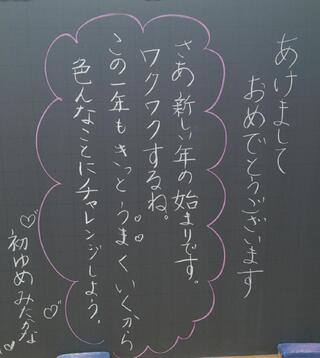 あけまして
おめでとうございます
さあ新しい年の始まりです。
ワクワクするね。
この一年もきっとうまくいくから
色んなことにチャレンジしよう。
初ゆめみたかな